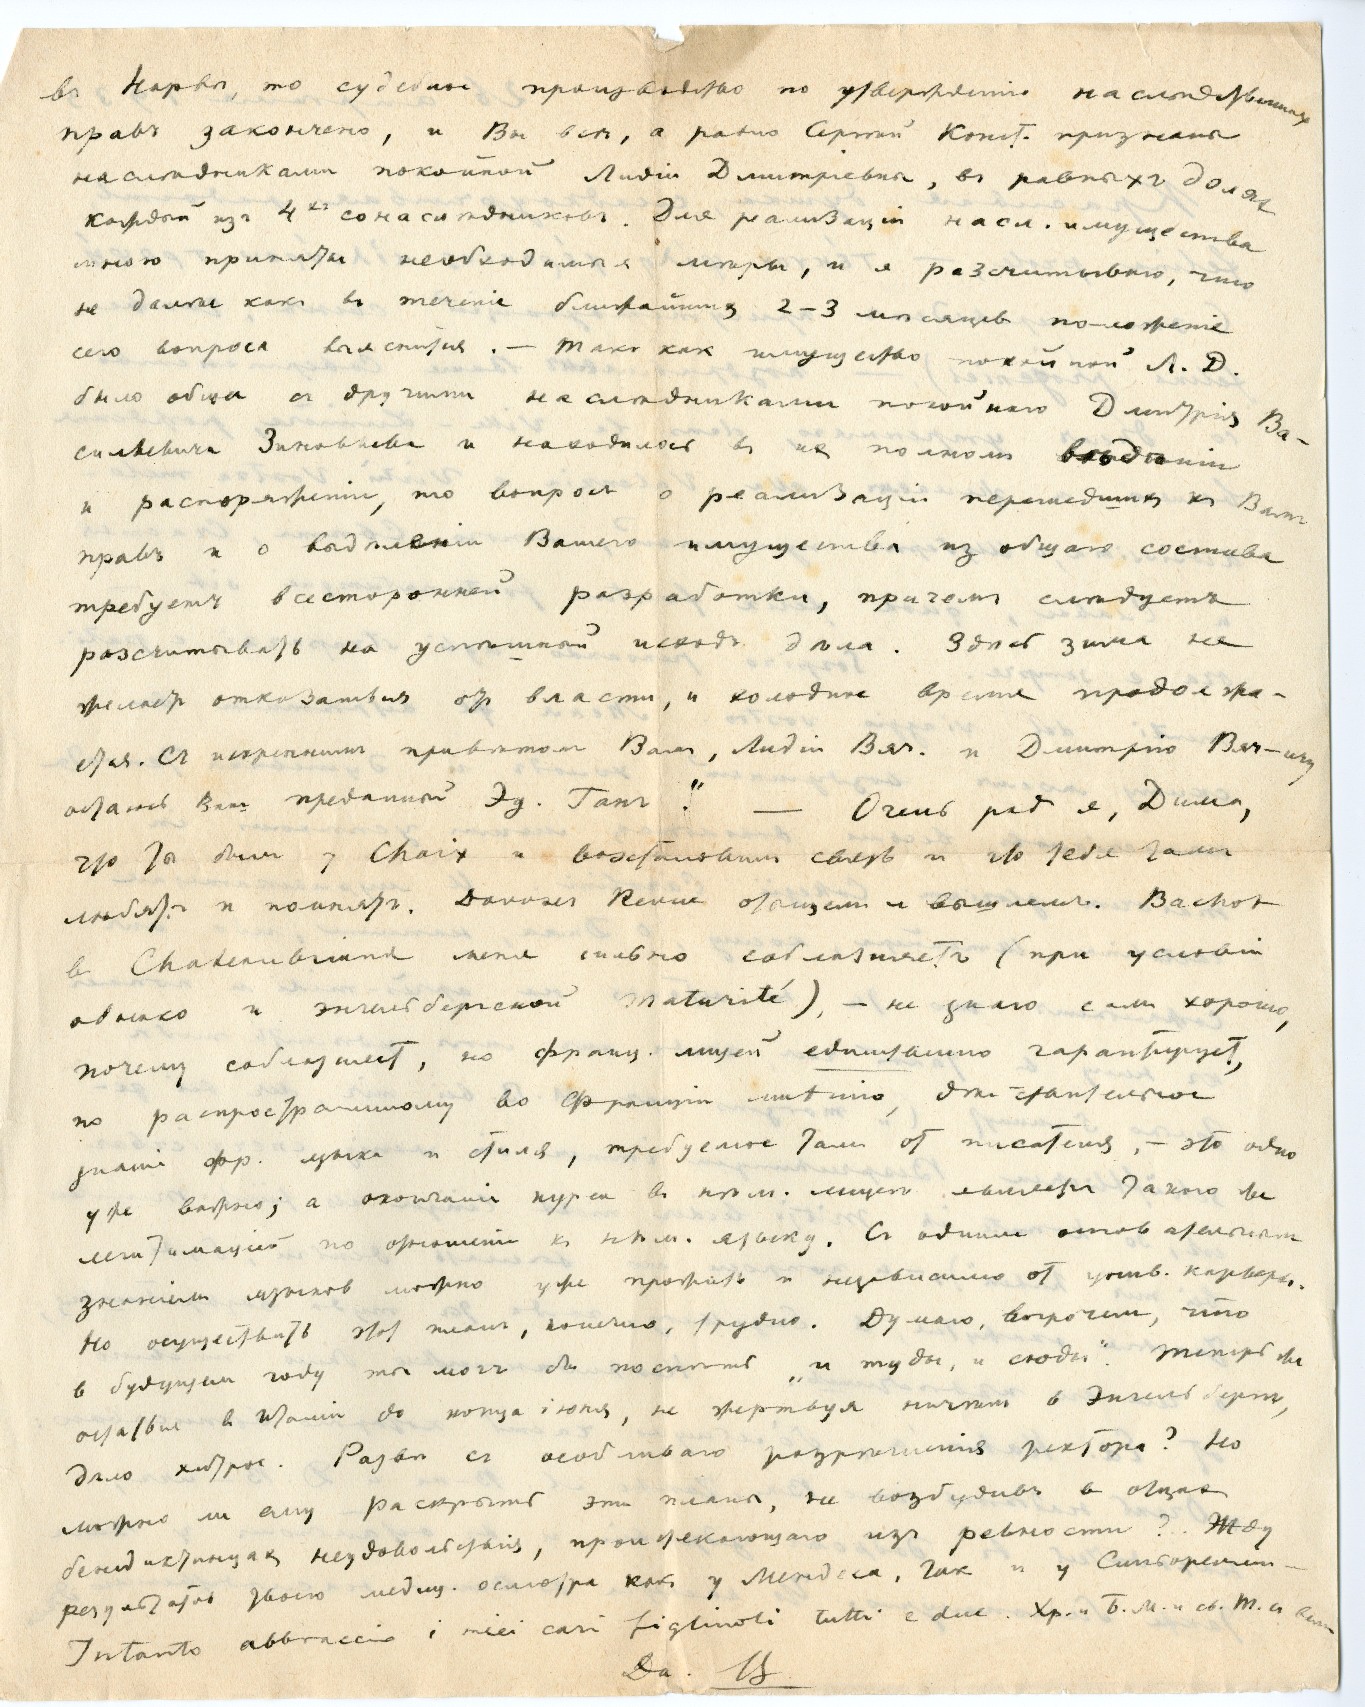 въ Нарвѣ, то судебное производство по утвержденію наслѣдственныхъ
правъ закончено, и Вы всѣ, а равно Сергѣй Конст. признаны
наслѣдниками покойной Лидіи Дмитріевны, въ равныхъ долях
каждый изъ 4хъ сонаслѣдниковъ. Для реализаціи насл. имущества
мною приняты необходимыя мѣры, и я разсчитываю, что
не далѣе какъ въ теченіе ближайших 2–3 мѣсяцев положеніе
сего вопроса выяснится. – Такъ как имущество покойной Л. Д.
было общее съ другими наслѣдниками покойнаго Дмитрія Ва-
сильевича Зиновьева и находилось въ их полном владѣніи
и распоряженіи, то вопросъ о реализаціи перешедших къ Вамъ
правъ и о выдѣленіи Вашего имущества из общаго состава
требуетъ всесторонней разработки, причемъ слѣдуетъ
разсчитывать на успѣшный исходъ дѣла. Здѣсь зима не
желает отказаться от власти, и холодное время продолжа-
ется. Съ искреннимъ привѣтом Вамъ, Лидіи Вяч. и Дмитрію Вяч-ичу
остаюсь Вамъ преданный Эд. Ганъ." — Очень рад я, Дима,
что ты был у Chaix и возстановил связь и что тебя там
любятъ и помнят. Davoser Revue отыщем и вышлем. Bachot
в Chateaubriand меня сильно соблазняетъ (при условіи
однако и энгельбергской maturité), – не знаю сам хорошо,
почему соблазняет, но франц. лицей единственно гарантирует,
по распространенному во Франціи мнѣнію, дѣйствительное
знаніе фр. языка и стиля, требуемое там от писателя, – это одно
уже важно; а окончаніе курса в нѣм. лицеѣ является такого же
легитимаціей по отношенію къ нѣм. языку. Съ одним основательным
знаніем языков можно уже прожить и независимо от унив. карьеры.
Но осуществить этот планъ, конечно, трудно. Думаю, впрочем, что
в будущем году ты могъ бы поспѣть „и туда, и сюда". Теперь же
остаться в Италіи до конца іюня, не жертвуя ничѣм в Энгельбергѣ,
дѣло хитрое. Развѣ съ особливаго разрѣшенія ректора? Но
можно ли ему раскрыть эти планы, не возбудивъ в отцах
бенедиктинцах неудовольствія, проистекающаго изъ ревности? Жду
результатов твоего медиц. осмотра какъ у Мендеса, так и у Синьорелли –
Intanto abbraccio i miei cari figliuoli tutti e due. Хр. и Б. М. и св. Т. съ вами
Da. В